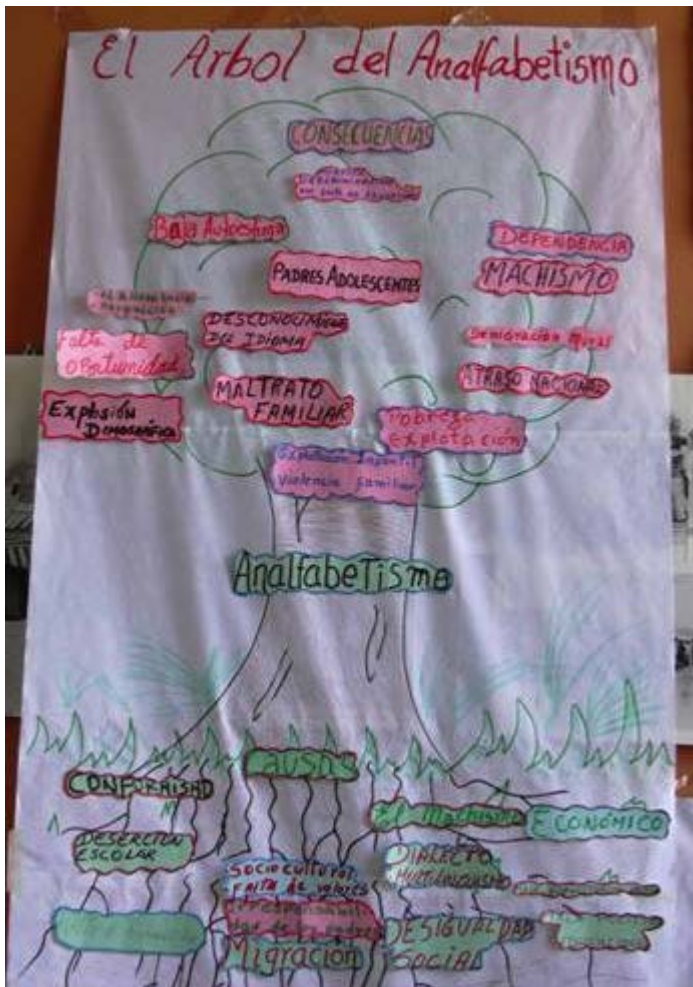 El Arbol del Analfabetismo
CONSECUENCIAS
Baja Autoestima
DEPENDENCIA
PADRES ADOLESCENTES
MACHISMO
DESCONOCIMIENTO
DEL IDIOMA
Falta de
oportunidad
ATRASO NACIONAL
MALTRATO
FAMILIAR
Explosión
DEMOGRÁFICA
Pobreza
explotación
Explotación Infantil
Violencia familiar
AnalfabeTismo
CAUSAS
CONFORMISMO
El Machismo
ECONÓMICO
DESERCIÓN
ESCOLAR
DIALECTO
MULTILINGUISMO
SOCIOCULTURAL
FALTA de valores
Migración
DESIGUALDAD
SOCIAL